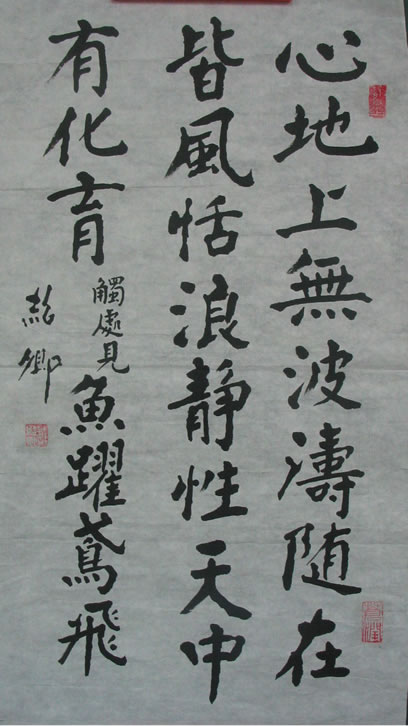 心地上無波濤随在
皆風恬浪靜性天中
有化育觸處見魚躍鳶飛